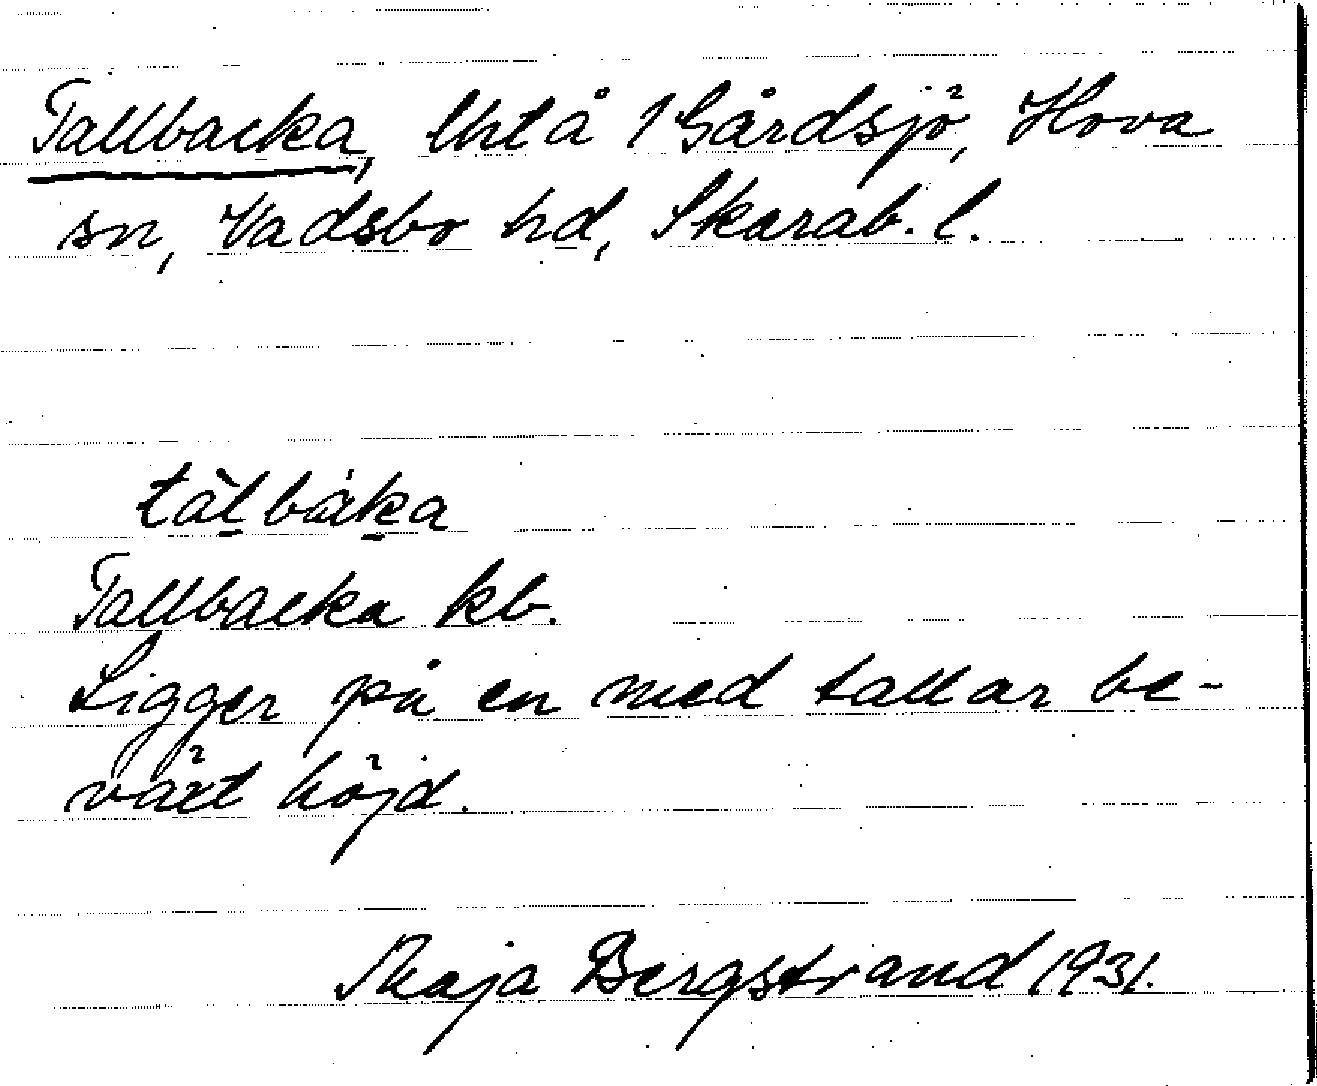 Tallbacka, lht å 1 Gårdsjö, Hova
sn, Vadsbo hd, Skarab. l.
tàlbáka
Tallbacka kb.
Ligger på en med tallar be-
växt höjd.
Maja Bergstrand 1931.